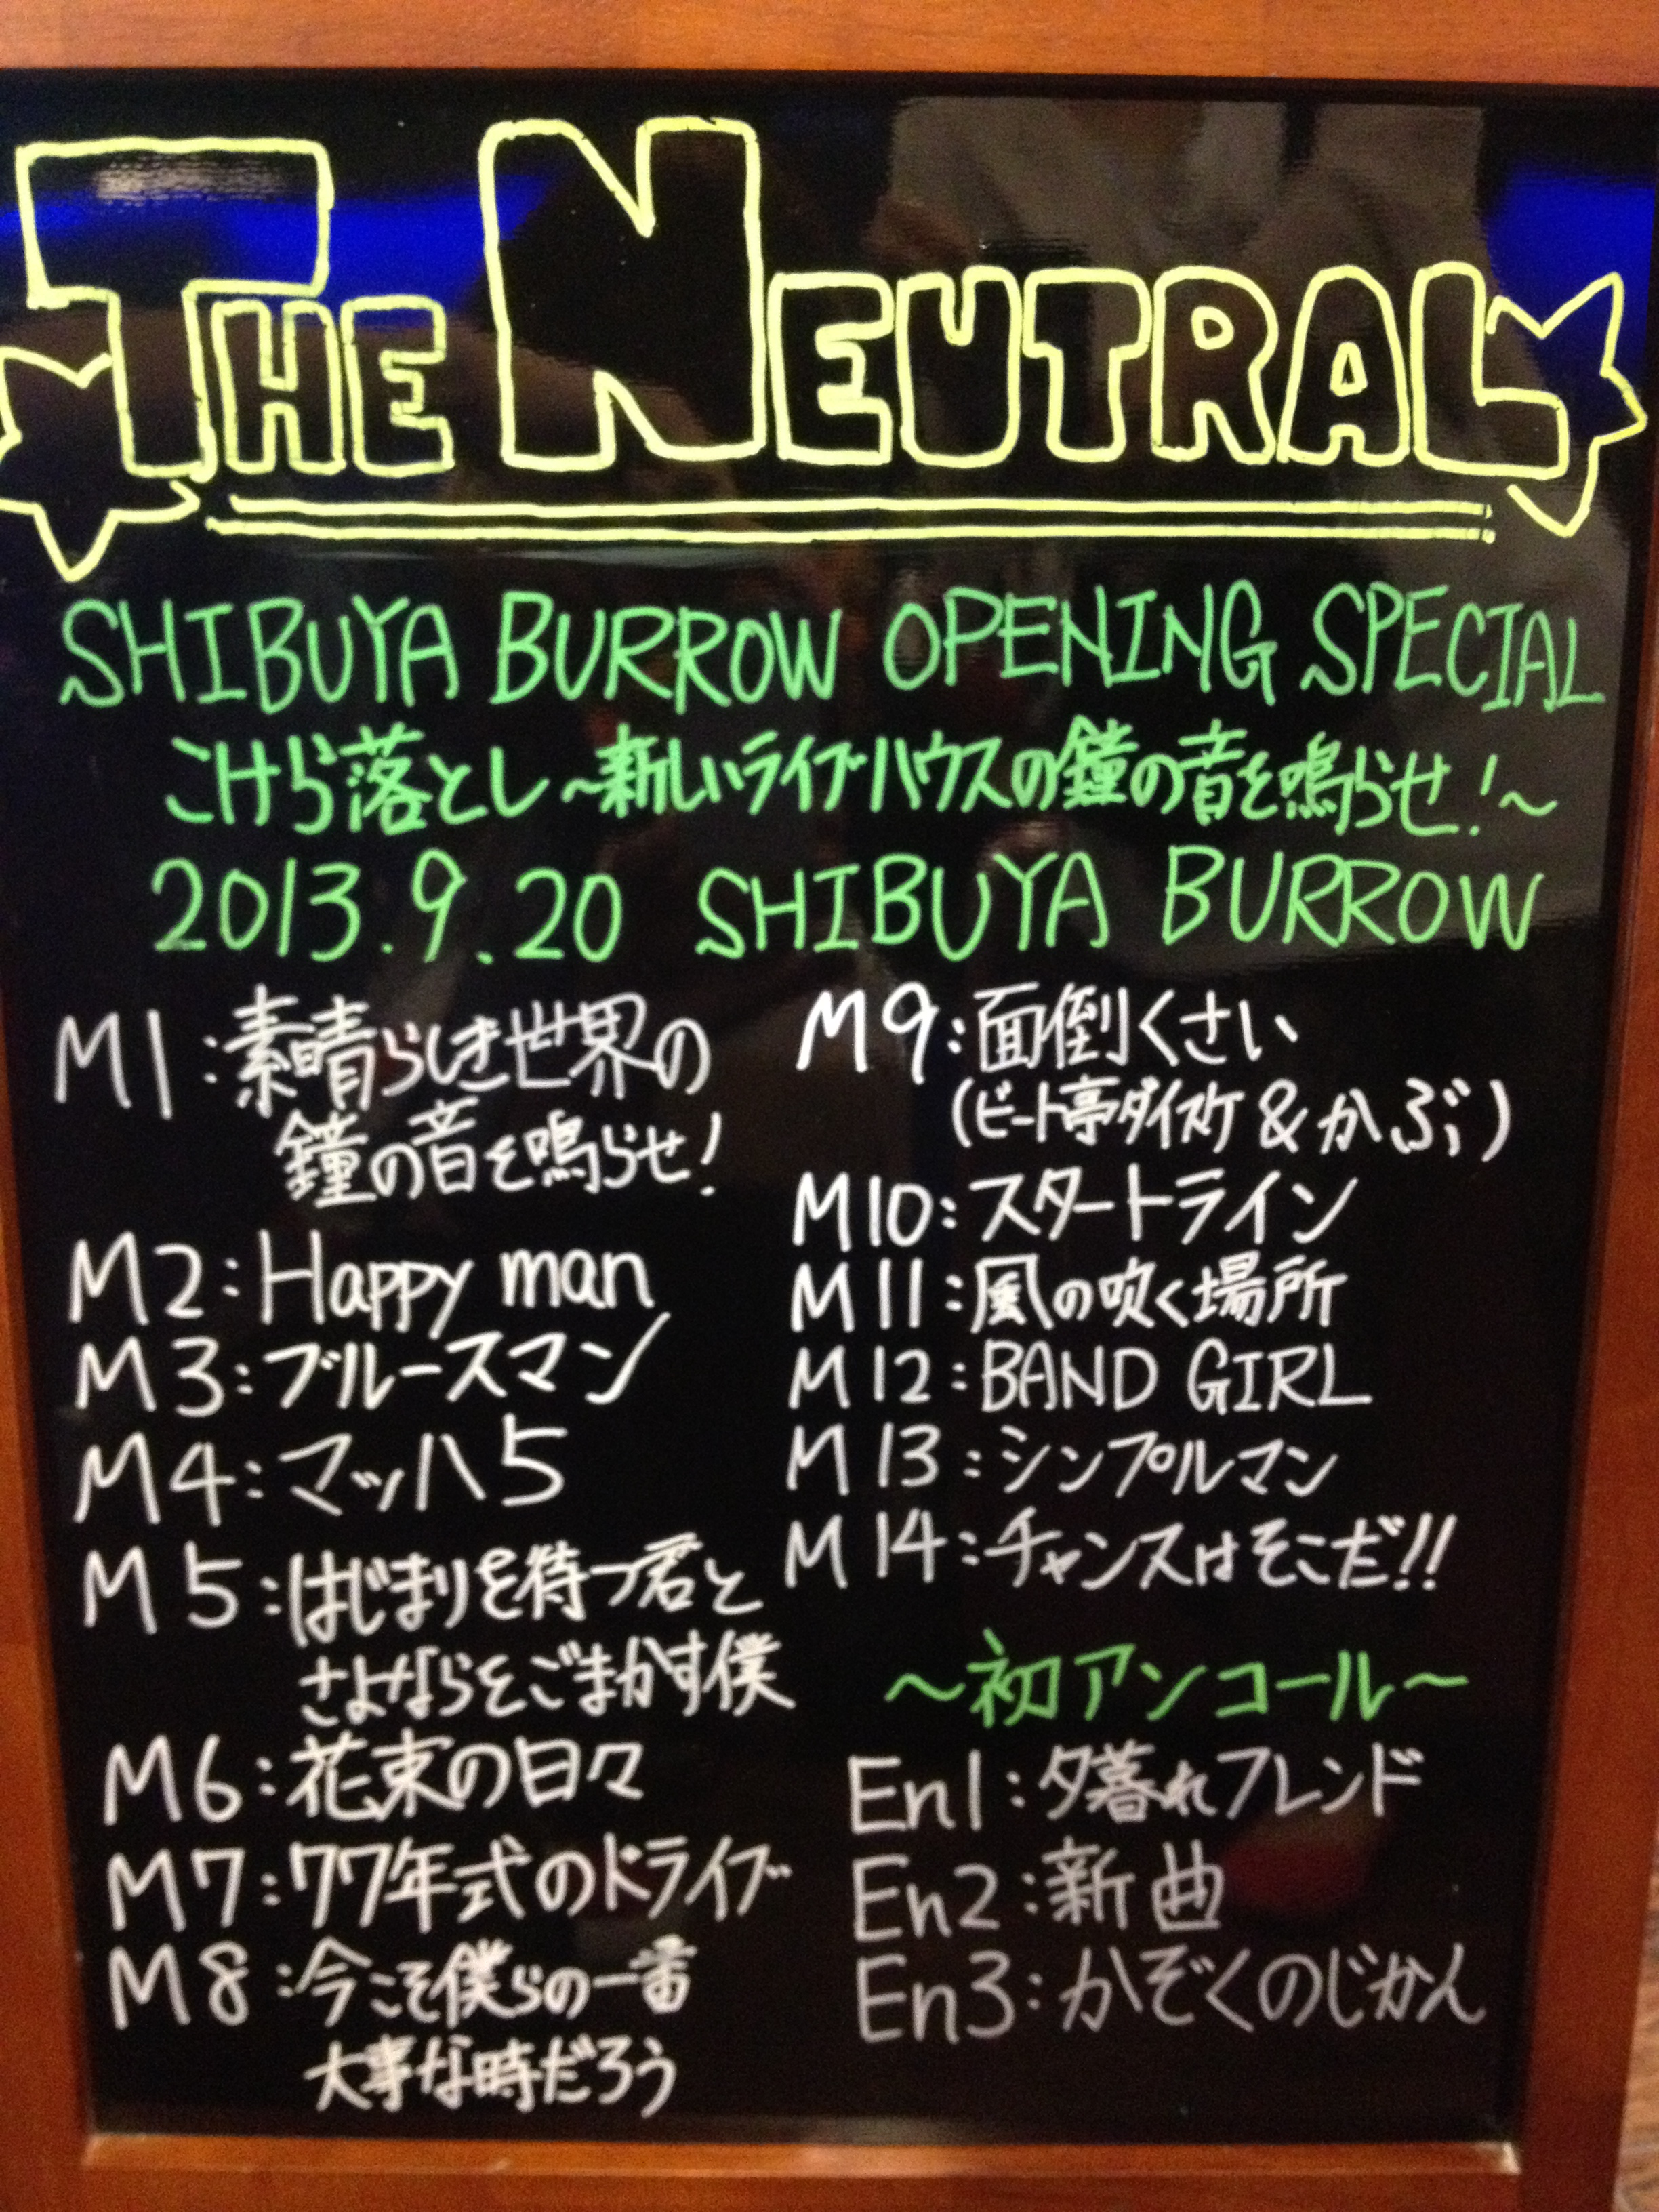 THE NEUTRAL
SHIBUYA BURROW OPENING SPECIAL
こけら落とし~新しいライブハウスの鐘の音を鳴らせ!~
2013.9.20 SHIBUYA BURROW
M1:素晴らしき世界の
鐘の音を鳴らせ!
M2:Happy man
M3:ブルースマン
M4:マッハ5
M5:はじまりを待つ君と
さよならをごまかす僕
M6:花束の日々
M7:77年式のドライブ
M8:今こそ僕らの一番
大事な時だろう
M9:面倒くさい
(ビート亭ダイスケ&かぶ)
M10:スタートライン
M11:風の吹く場所
M12:BAND GIRL
M13:シンプルマン
M14:チャンスはそこだ!!
~初アンコール~
En1:夕暮れフレンド
En2:新曲
En3:かぞくのじかん